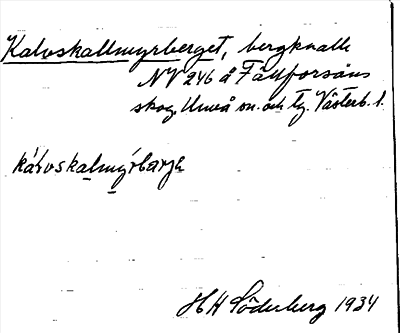 Kalvskallmyrberget, bergknalle
NV 246 å Fällforsåns
skog, Umeå sn. och tg. Västerb. l.
kálvskalmýrbærjə
HH Söderberg 1934